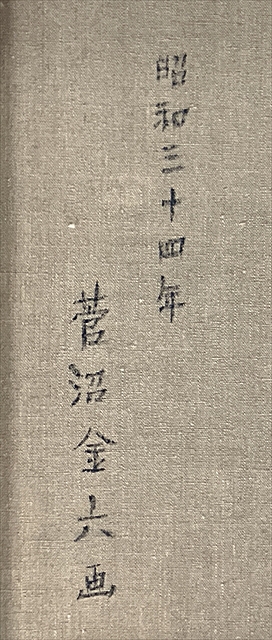 昭和三十四年
菅沼金六画